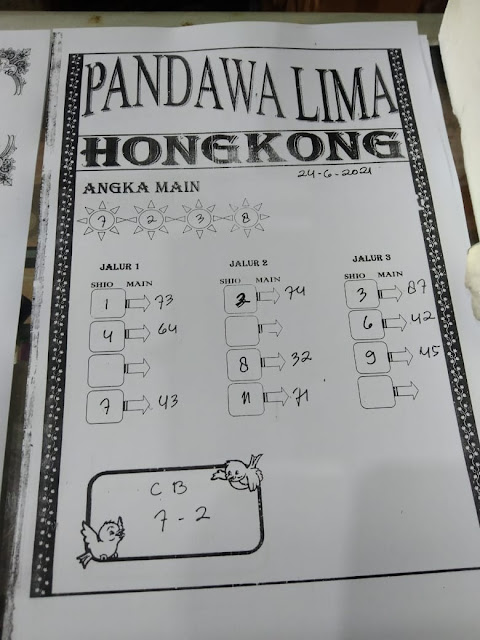 PANDAWA LIMA
HONGKONG
24-6-2021
ANGKA MAIN
7 2 3 8
JALUR 1
SHIO MAIN
1 73
4 64
7 43
JALUR 2
SHIO MAIN
2 74
8 32
11 71
JALUR 3
SHIO MAIN
3 87
6 42
9 45
C B
7 - 2